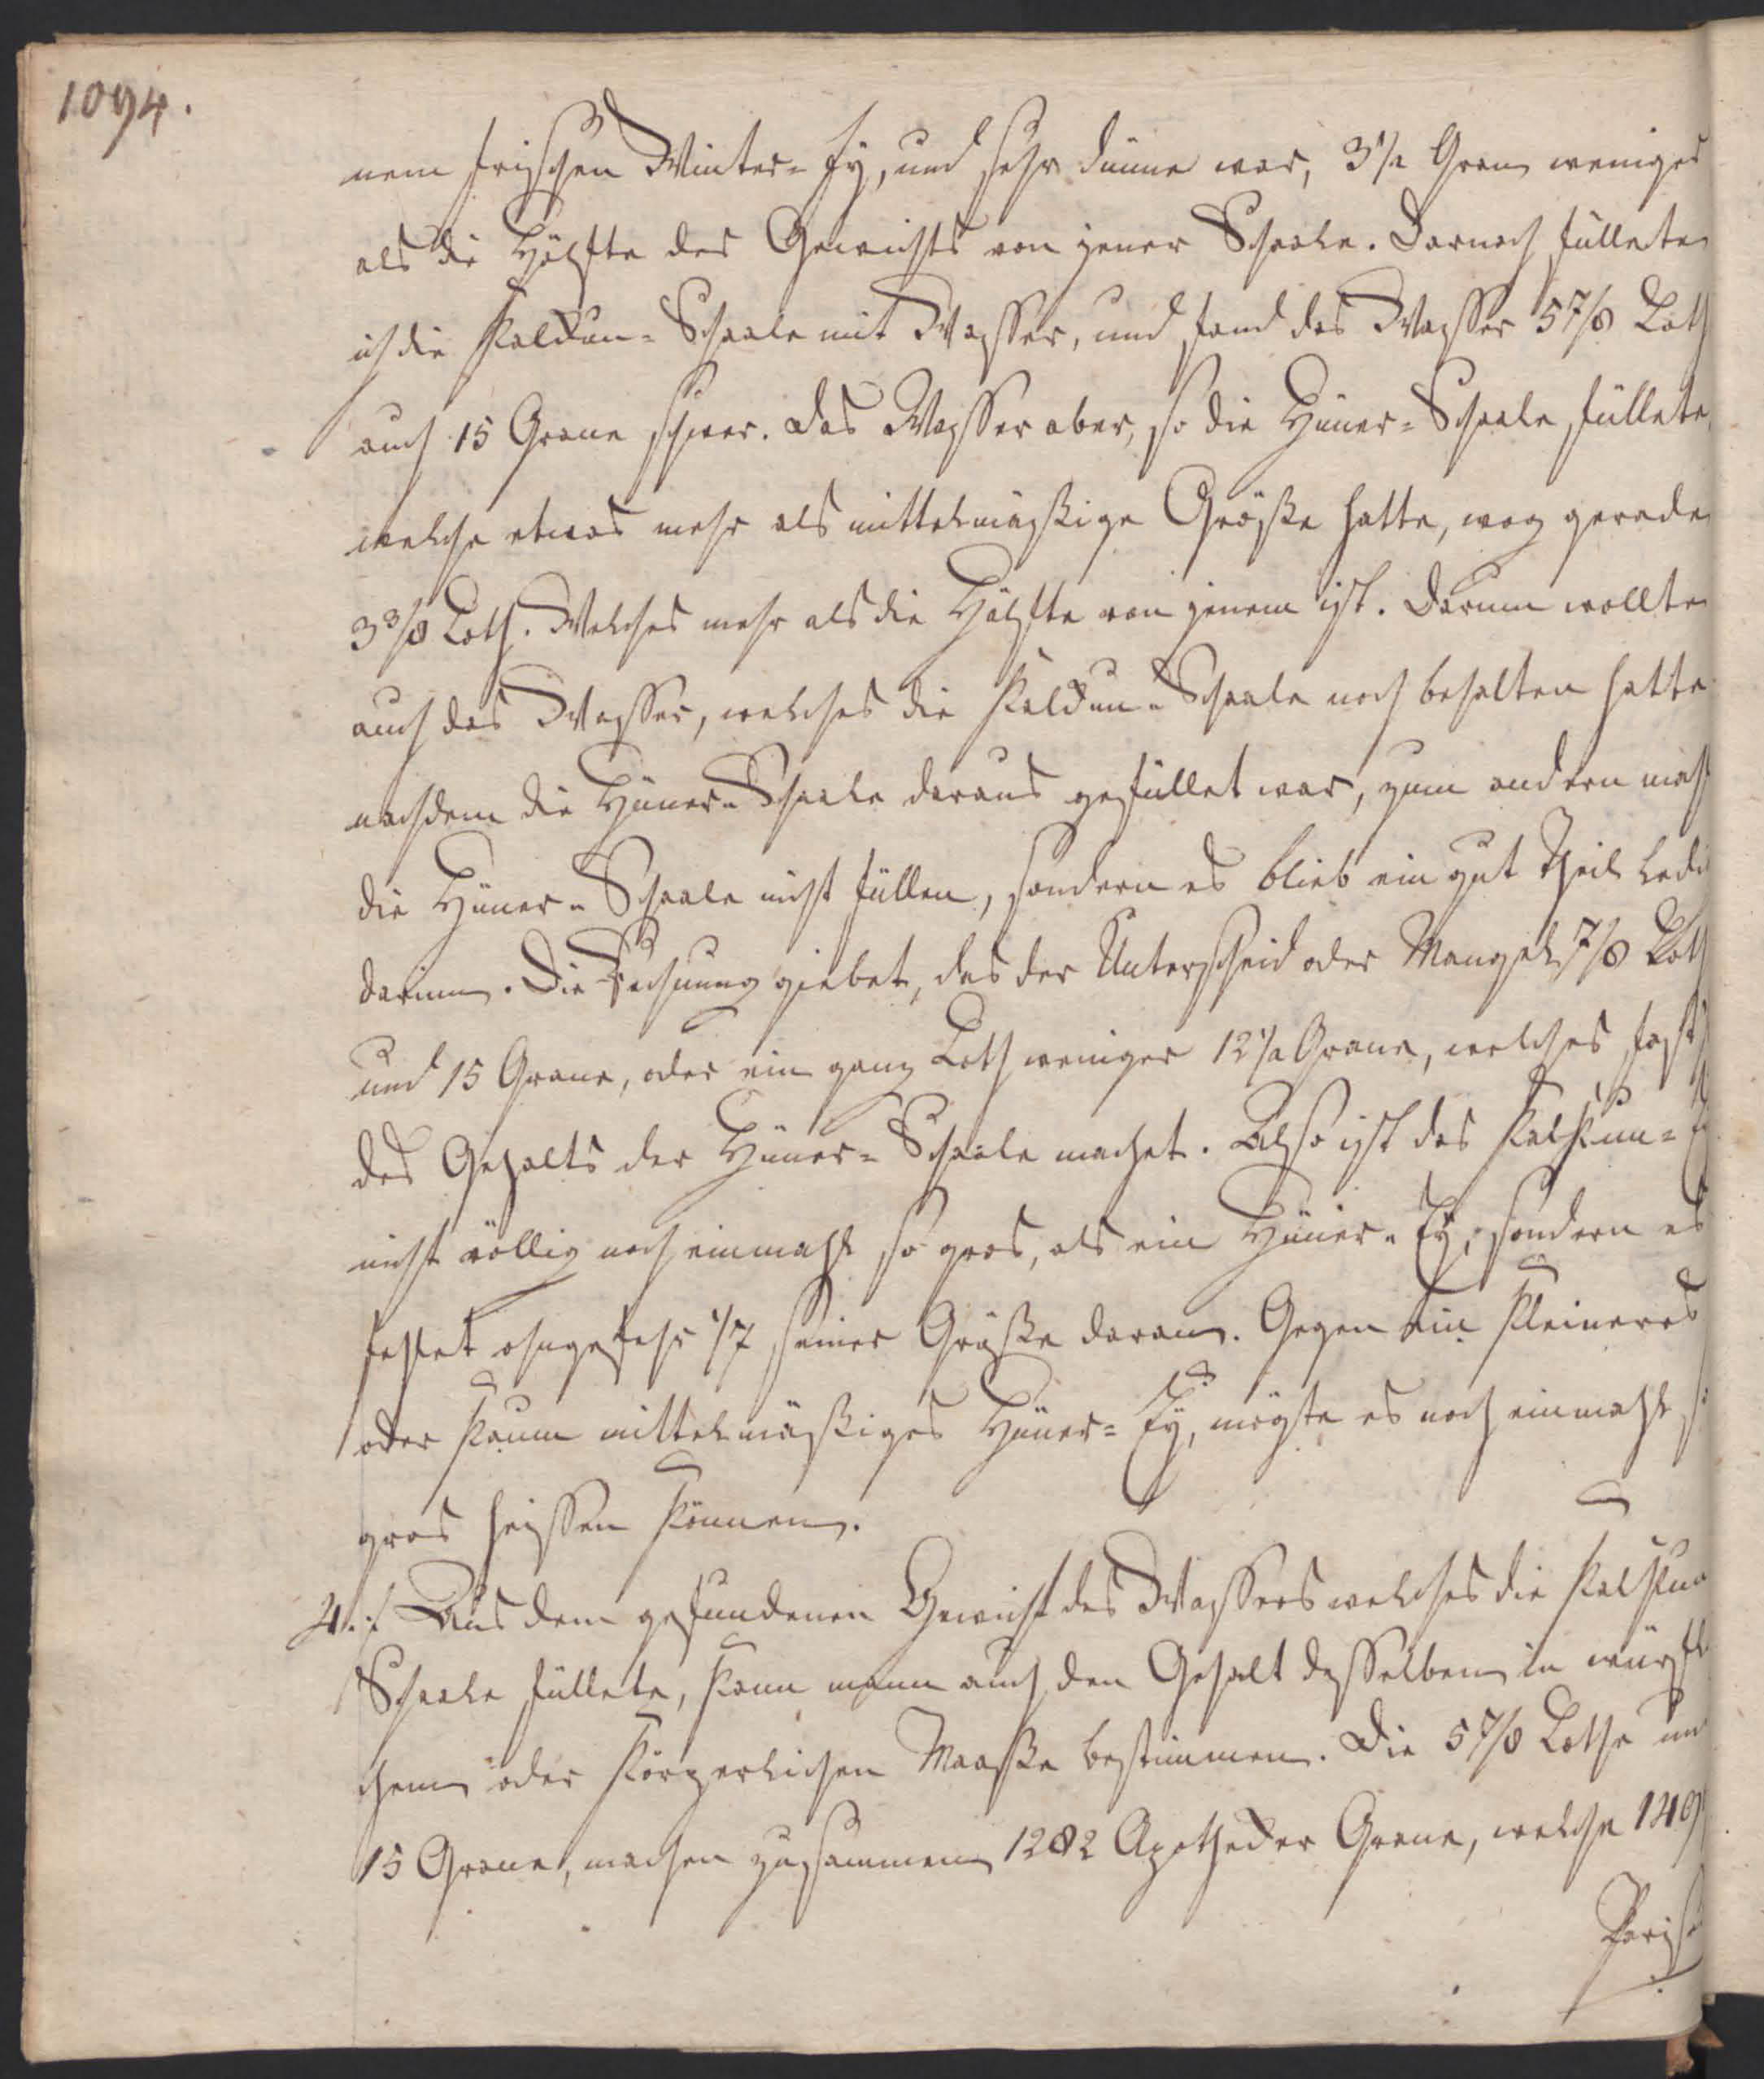 1094.
nem frischen Winter-Ey, und sehr dünne war, 3 1/2 Gran weniger
als die Hälfte des Gewichts von jener Schaale. Darnach füllete
ich die Kalkun-Schaale mit Wasser, und fand das Wasser 5 7/8 Loth
auch 15 Grane schwer. Das Wasser aber, so die Hüner-Schaale füllete,
welche etwas mehr als mittelmäßige Größe hatte, wog gerade
3 3/8 Loth. Welches mehr als die Hälfte von jenem ist. Darum wollte
auch das Wasser, welches die Kalkun-Schaale noch behalten hatte
nachdem die Hüner-Schaale daraus gefüllet war, zum andern mahl
die Hüner-Schaale nicht füllen, sondern es blieb ein gut Theil
darinn. Die Rechnung giebet, das der Unterscheid oder Mangel 7/8 Loth
und 15 Grane, oder ein ganz Loth weniger 12 1/2 Grane, welches fast
des Gehalts der Hüner-Schaale machet. Also ist das Kalkun-
nicht völlig noch einmahl so gros, als ein Hüner-Ey, sondern es
fehlet ohngefehr 1/7 seiner Größe daran. Gegen ein kleineres
oder kaum mittelmäßiges Hüner-Ey, mögte es noch einmahl so
gros heissen können.
4.) Aus dem gefundenen Gewicht des Wassers welches die Kalkun
Schaale füllete, kann mann auch den Gehalt desselben in würfli
chem oder körperlichen Maaße bestimmen. Die 5 7/8 Lothe und
15 Grane, machen zusammen 1282 Apotheker Grane, welche 149
Paris